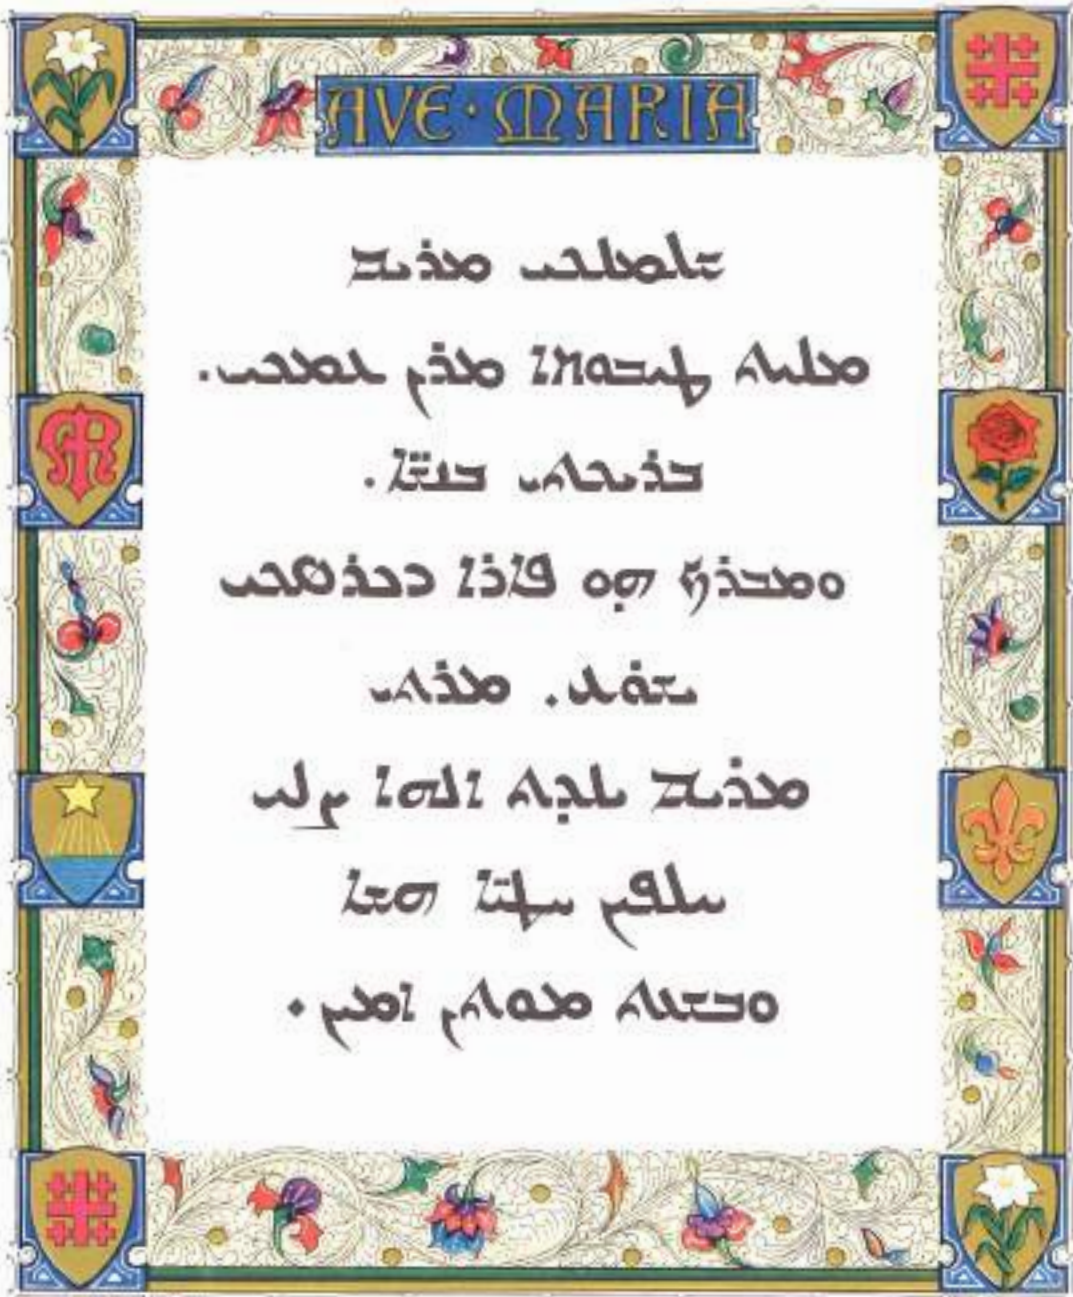 ܫܠܡܠܟܝ ܡܪܝܡ
ܡܠܝܬ ܛܝܒܘܬܐ ܡܪܢ ܥܡܟܝ.
ܒܪܝܟܬܝ ܒܢܫ̈ܐ.
ܘܡܒܪܟ ܗ̣ܘ ܦܐܪܐ ܕܒܟܪܣܟܝ
ܝܫܘܥ. ܡܪܬܝ
ܡܪܝܡ ܝܠܕܬ ܐܠܗܐ ܨܠܝ
ܚܠܦܝܢ ܚܛܝ̈ܐ ܗܫܐ
ܘܒܫܥܬ ܡܘܬܢ ܐܡܝܢ.
AVE · MARIA